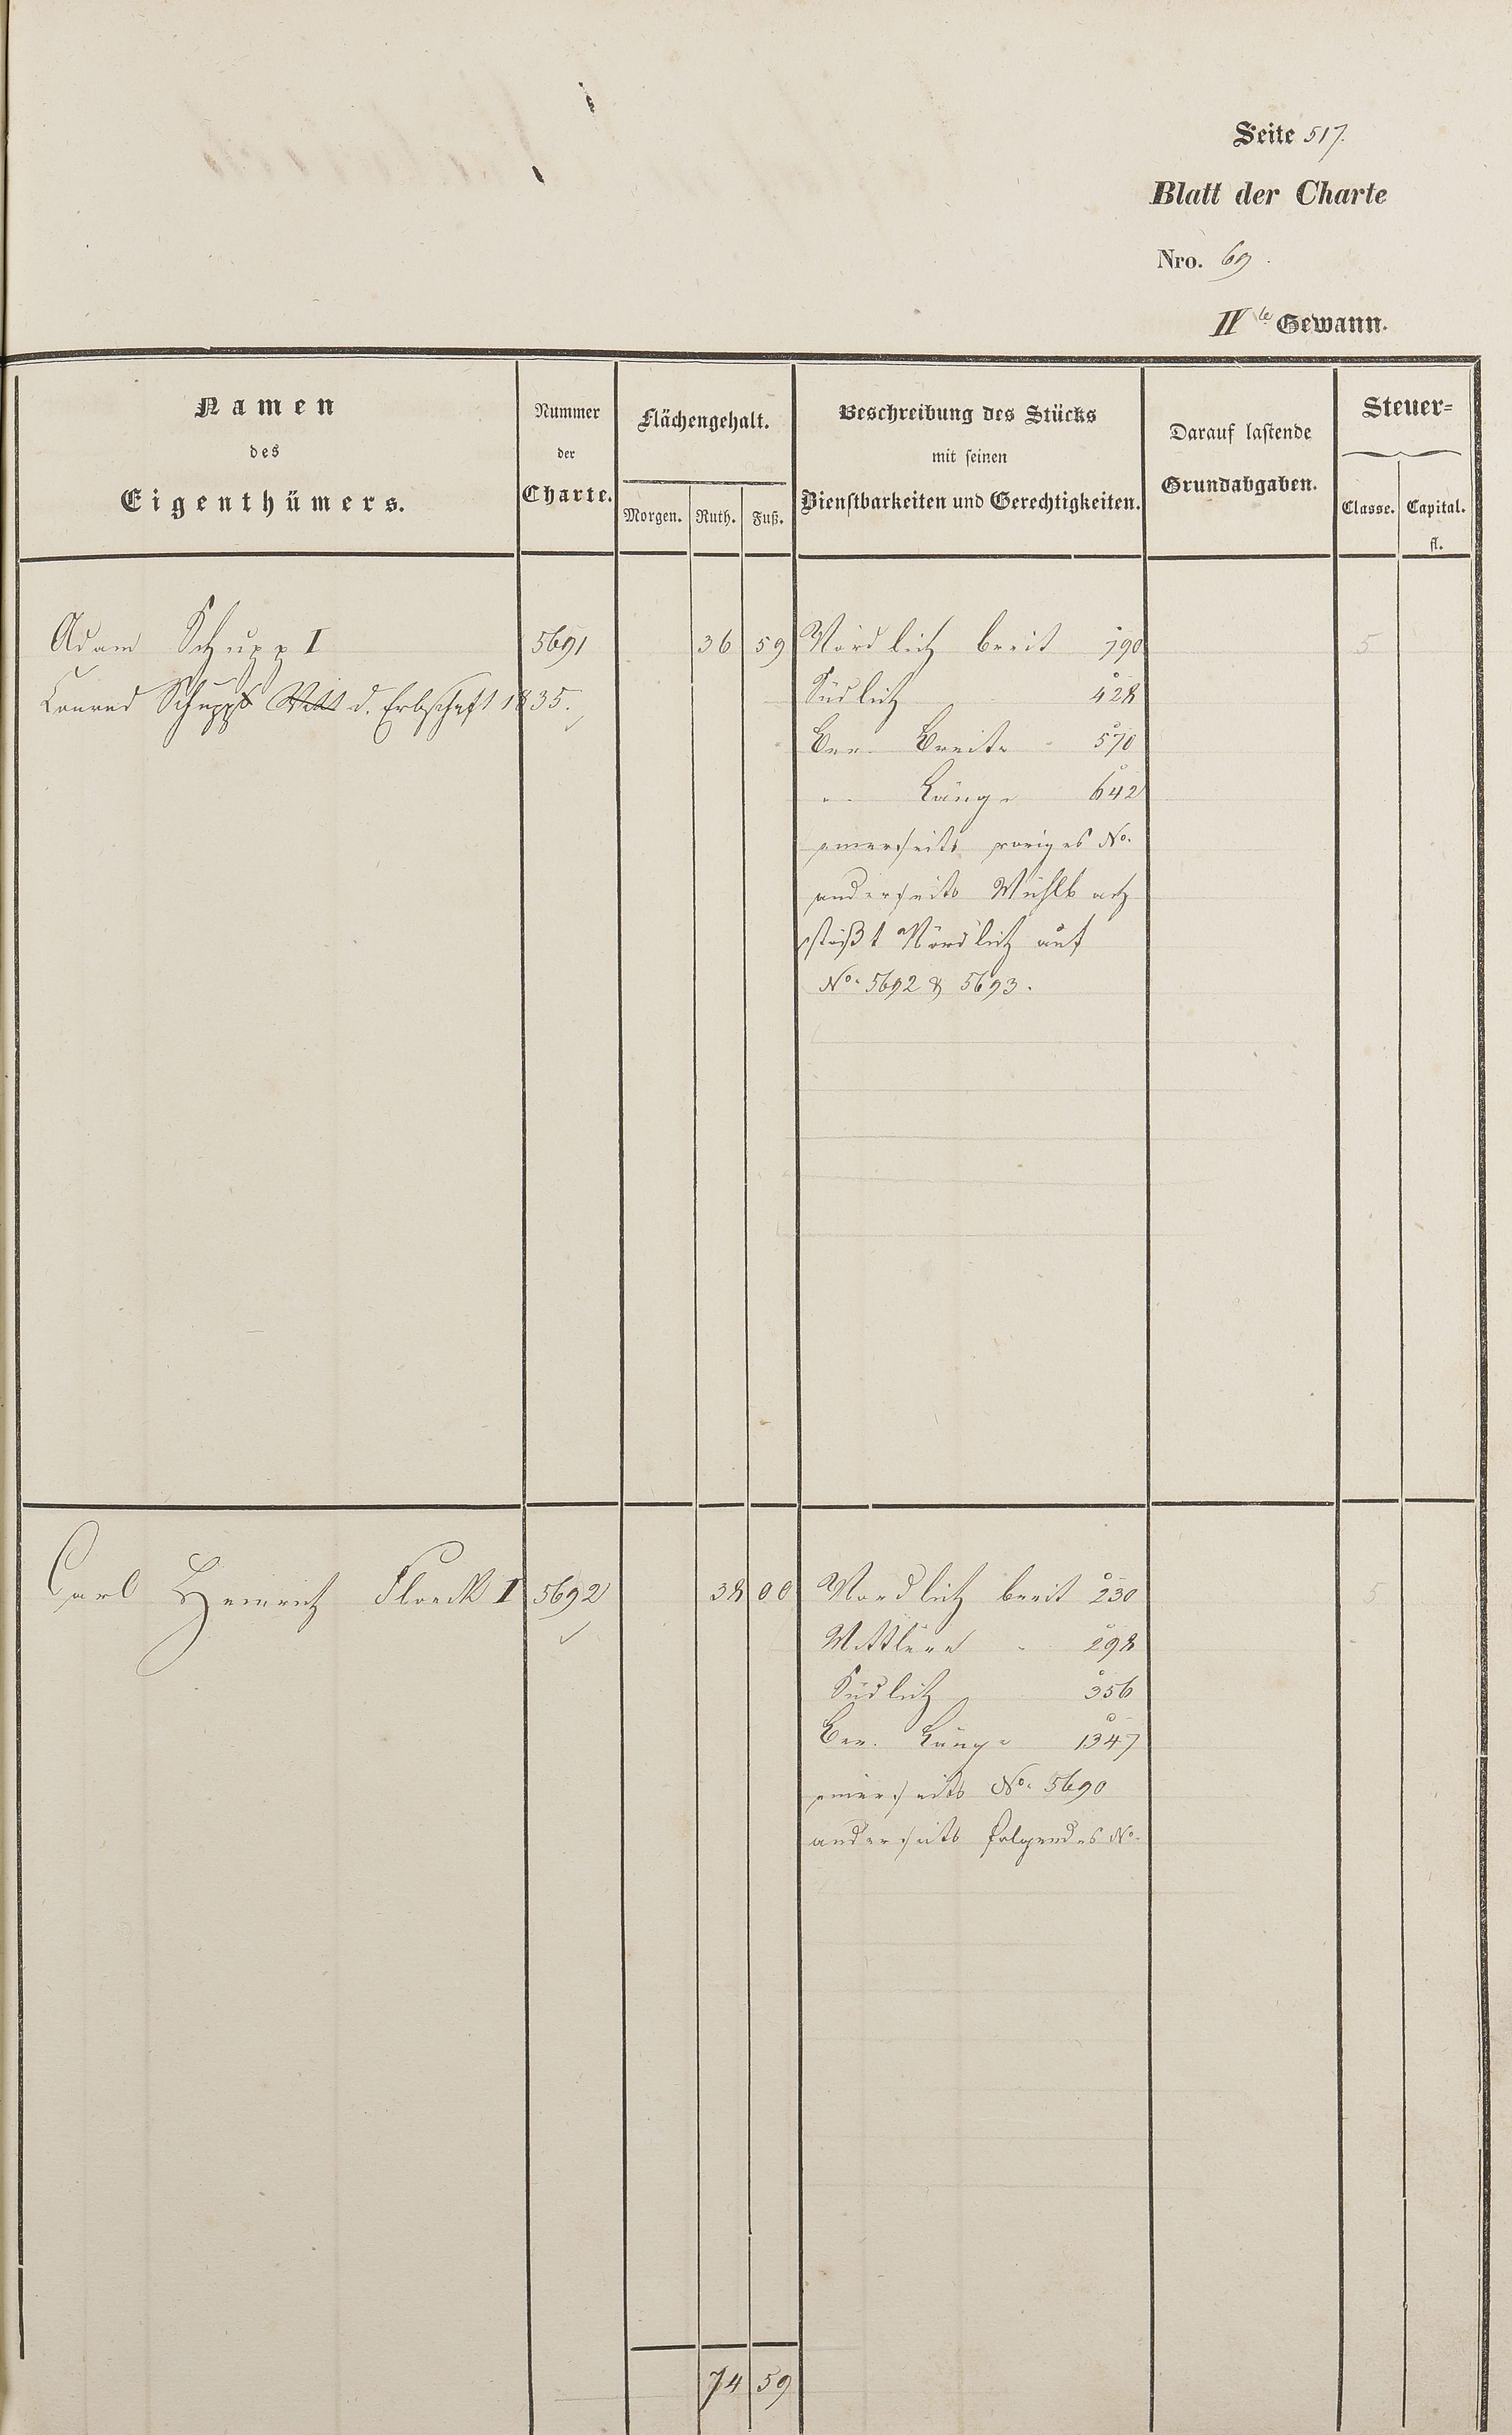 Seite 517.
Blatt der Charte
Nro. 69.
IVte Gewann.
Namen
des
Eigenthümers.
Nummer
der
Charte.
Flächengehalt.
Morgen. Ruth. Fuß.
Beschreibung des Stücks
mit seinen
Dienstbarkeiten und Gerechtigkeiten.
Darauf lastende
Grundabgaben.
Steuer-
Classe. Capital.
fl.
Adam Schupp I 5691 36 59 Nördlich breit 790 5
Conrad Schupp d. Erbschaft 1835. Südlich 428
Ber. Breite 570
" Länge 642
einerseits voriges No.
anderseits Mühlbach
stößt Nördlich auf
No. 5692 & 5693.
Carl Heinrich Floeck I 5692 38 00 Nördlich breit 230 5
Mittlere " 298
Südlich 356
Ber. Länge 1347
einerseits No. 5690
anderseits folgendes No.
74 59